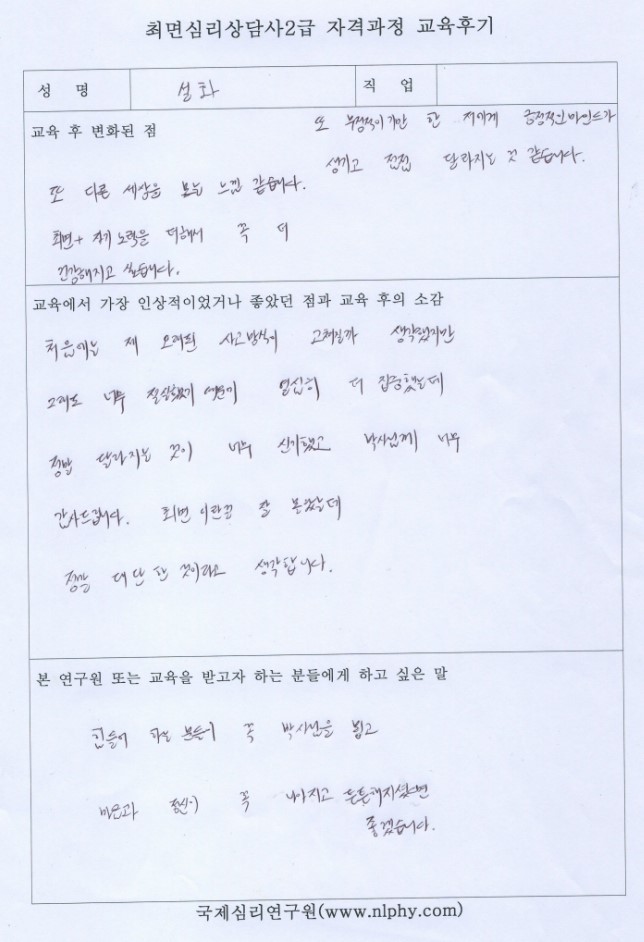 최면심리상담사2급 자격과정 교육후기
성 명 설화 직 업
교육 후 변화된 점
또 부정적이기만 한 저에게 긍정적인 마인드가
생기고 점점 달라지는 것 같습니다.
또 다른 세상을 보는 느낌 같습니다.
최면+자기 노력을 더해서 꼭 더
건강해지고 싶습니다.
교육에서 가장 인상적이었거나 좋았던 점과 교육 후의 소감
처음에는 제 오래된 사고방식이 고쳐질까 생각했지만
그래도 너무 절실했기 때문에 열심히 더 집중했는데
정말 달라지는 것이 너무 신기했고 박사님께 너무
감사드립니다. 최면이란걸 잘 몰랐는데
정말 대단한 것이라고 생각합니다.
본 연구원 또는 교육을 받고자 하는 분들에게 하고 싶은 말
힘들어 하는 분들이 꼭 박사님을 뵙고
마음과 정신이 꼭 나아지고 튼튼해지셨으면
좋겠습니다.
국제심리연구원(www.nlphy.com)